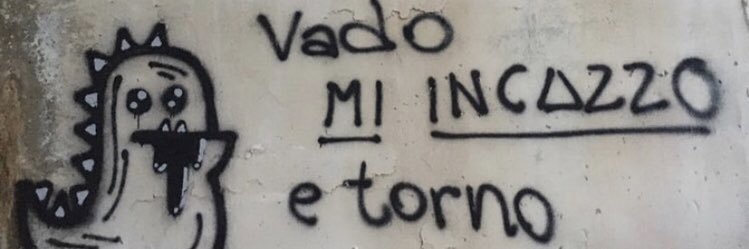 Vado
MI INCAZZO
e torno